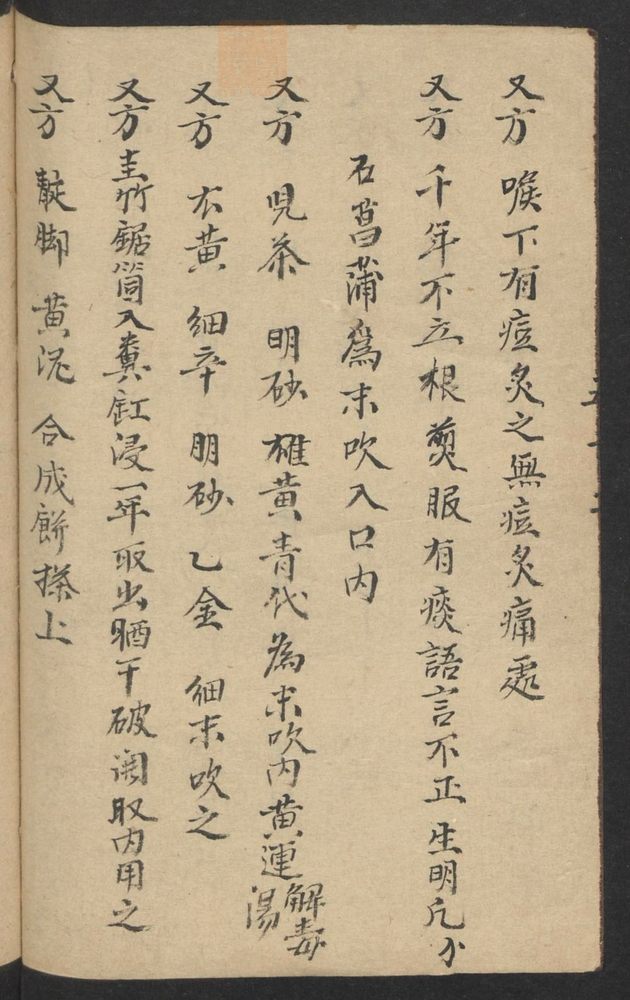 又方 喉下有痘炙之無痘炙痛處
又方 千年不立根煎服有痰語言不正 生明凡 少
石菖蒲為末吹入口內
又方 児茶 明砂 雄黃 青代 為末吹內 黃連解毒湯
又方 大黃 細辛 朋砂 乙金 細末吹之
又方 圭竹鋸筒入糞缸浸一年取出晒干破開取內用之
又方 靛脚 黃泥 合成餅搽上